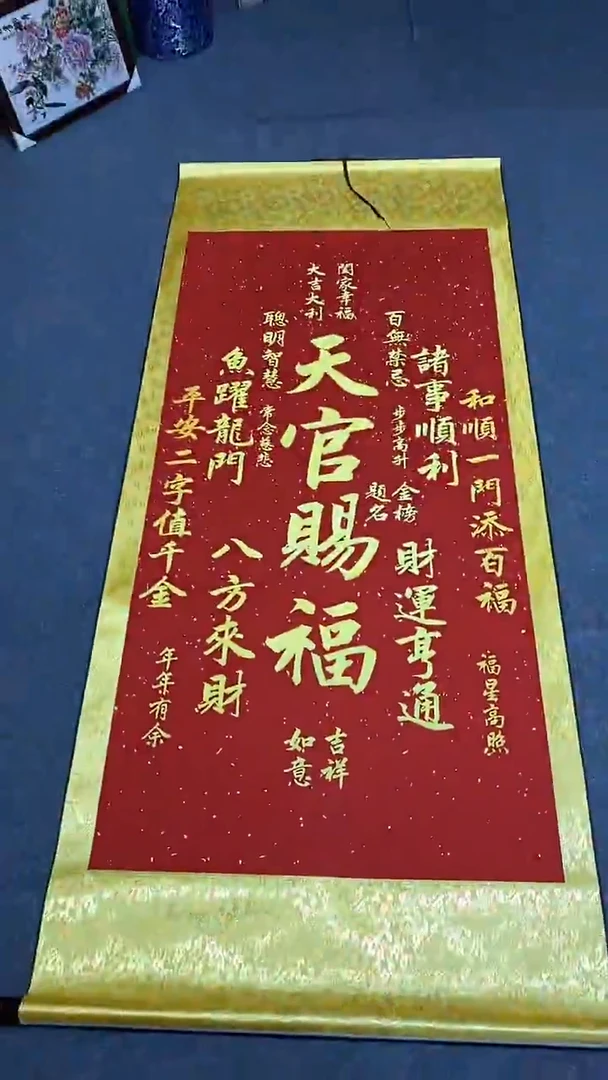 和順一門添百福
福星高照
諸事順利
財運亨通
百無禁忌
步步高升
金榜
題名
闔家幸福
大吉大利
天官賜福
吉祥
如意
聰明智慧
常念慈悲
魚躍龍門
八方來財
平安二字值千金
年年有余